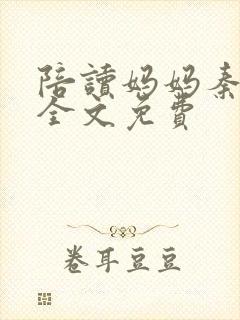 陪讀妈妈秦
全文免費
卷耳豆豆